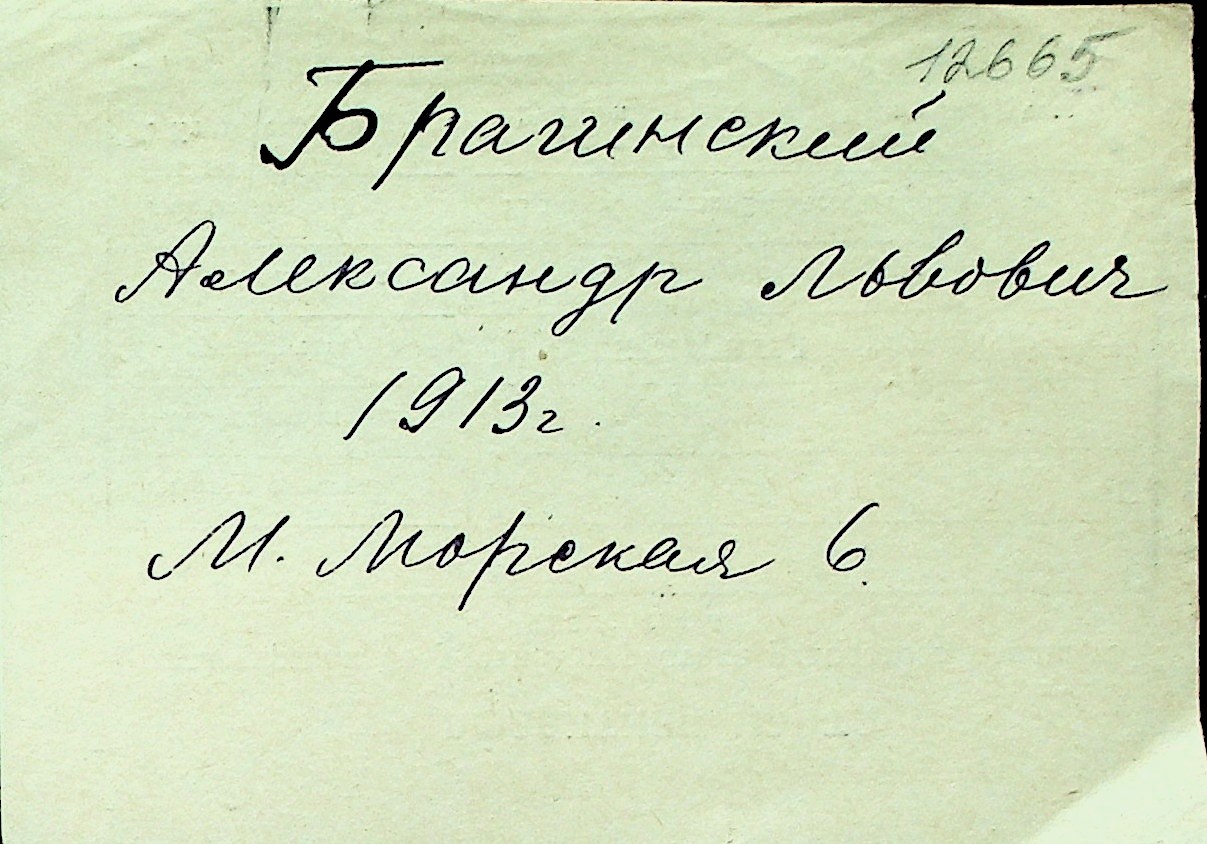 12665
Брагинский
Александр Львович
1913г.
М. Морская 6